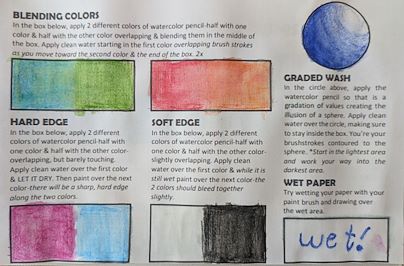 BLENDING COLORS
In the box below, apply 2 different colors of watercolor pencil-half with one
color & half with the other color overlapping & blending them in the middle of
the box. Apply clean water starting in the first color overlapping brush strokes
as you move toward the second color & the end of the box. 2x
HARD EDGE
In the box below, apply 2 different
colors of watercolor pencil-half with
one color & half with the other color-
overlapping, but barely touching.
Apply clean water over the first color
& LET IT DRY. Then paint over the next
color-there will be a sharp, hard edge
along the two colors.
SOFT EDGE
In the box below, apply 2 different
colors of watercolor pencil-half with
one color & half with the other color-
slightly overlapping. Apply clean
water over the first color & while it is
still wet paint over the next color-the
2 colors should bleed together
slightly.
GRADED WASH
In the circle above, apply the
watercolor pencil so that is a
gradation of values creating the
illusion of a sphere. Apply clean
water over the circle, making sure
to stay inside the box. You're your
brushstrokes contoured to the
sphere. *Start in the lightest area
and work your way into the
darkest area.
WET PAPER
Try wetting your paper with your
paint brush and drawing over
the wet area.
wet!